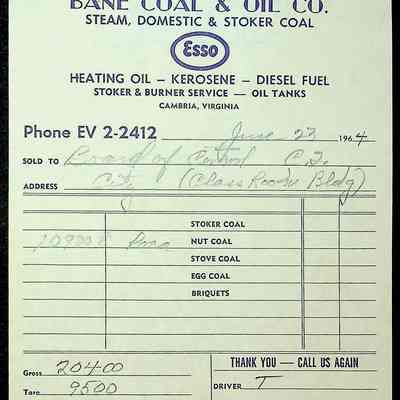 BANE COAL & OIL CO.
STEAM, DOMESTIC & STOKER COAL
Esso
HEATING OIL — KEROSENE — DIESEL FUEL
STOKER & BURNER SERVICE — OIL TANKS
CAMBRIA, VIRGINIA
Phone EV 2-2412 June 23 1964
SOLD TO Board of Control C.I.
ADDRESS City (Class Room Bldg)
STOKER COAL
10900 NUT COAL
STOVE COAL
EGG COAL
BRIQUETS
Gross 20400
Tare 9500
THANK YOU — CALL US AGAIN
DRIVER T